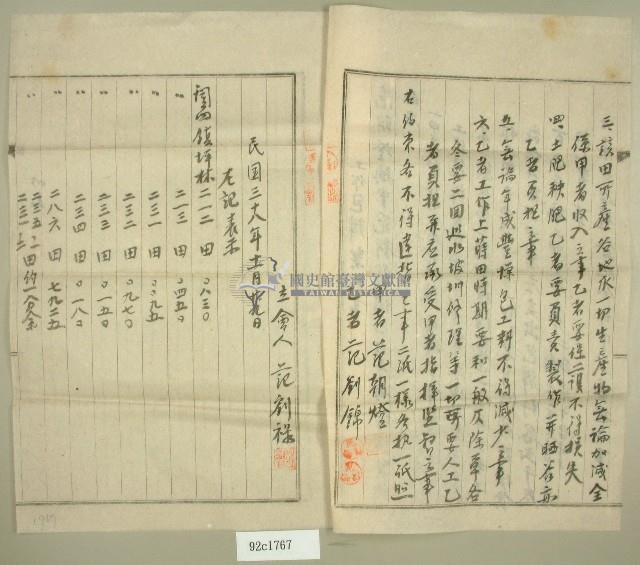 三、該田所產谷地瓜一切生產物無論加減全
係甲者收入之事乙者要保護不得損失
四、土肥秧肥乙者要負責製作並晒谷亦
乙者負担之事
五、無論年成豐歉包工料不得減少之事
六、乙者工作上蒔田時期要和一般及除草各
冬要二回巡水坡圳修理等一切所要人工乙
者負担并應承受甲者指揮監督之事
右約束各不得違
事二紙一樣各执一紙照
者 范朝燈
者 范劉錦
立會人 范劉祿
民国三十八年十一月
左記表示
關西鎮坪林 二一二 田 〇.八三〇
〃 二一三 田 〇.四五〇
〃 二三一 田 〇.〇九五
〃 二三二 田 〇.九七〇
〃 二三三 田 〇.一五〇
〃 二三四 田 〇.〇一八〇
〃 二八六 田 七九二五
〃 二三五.一 田 約一分余
二三一.二
國史館臺灣文獻館
TAIWAN HISTORICA
1949
92c1767